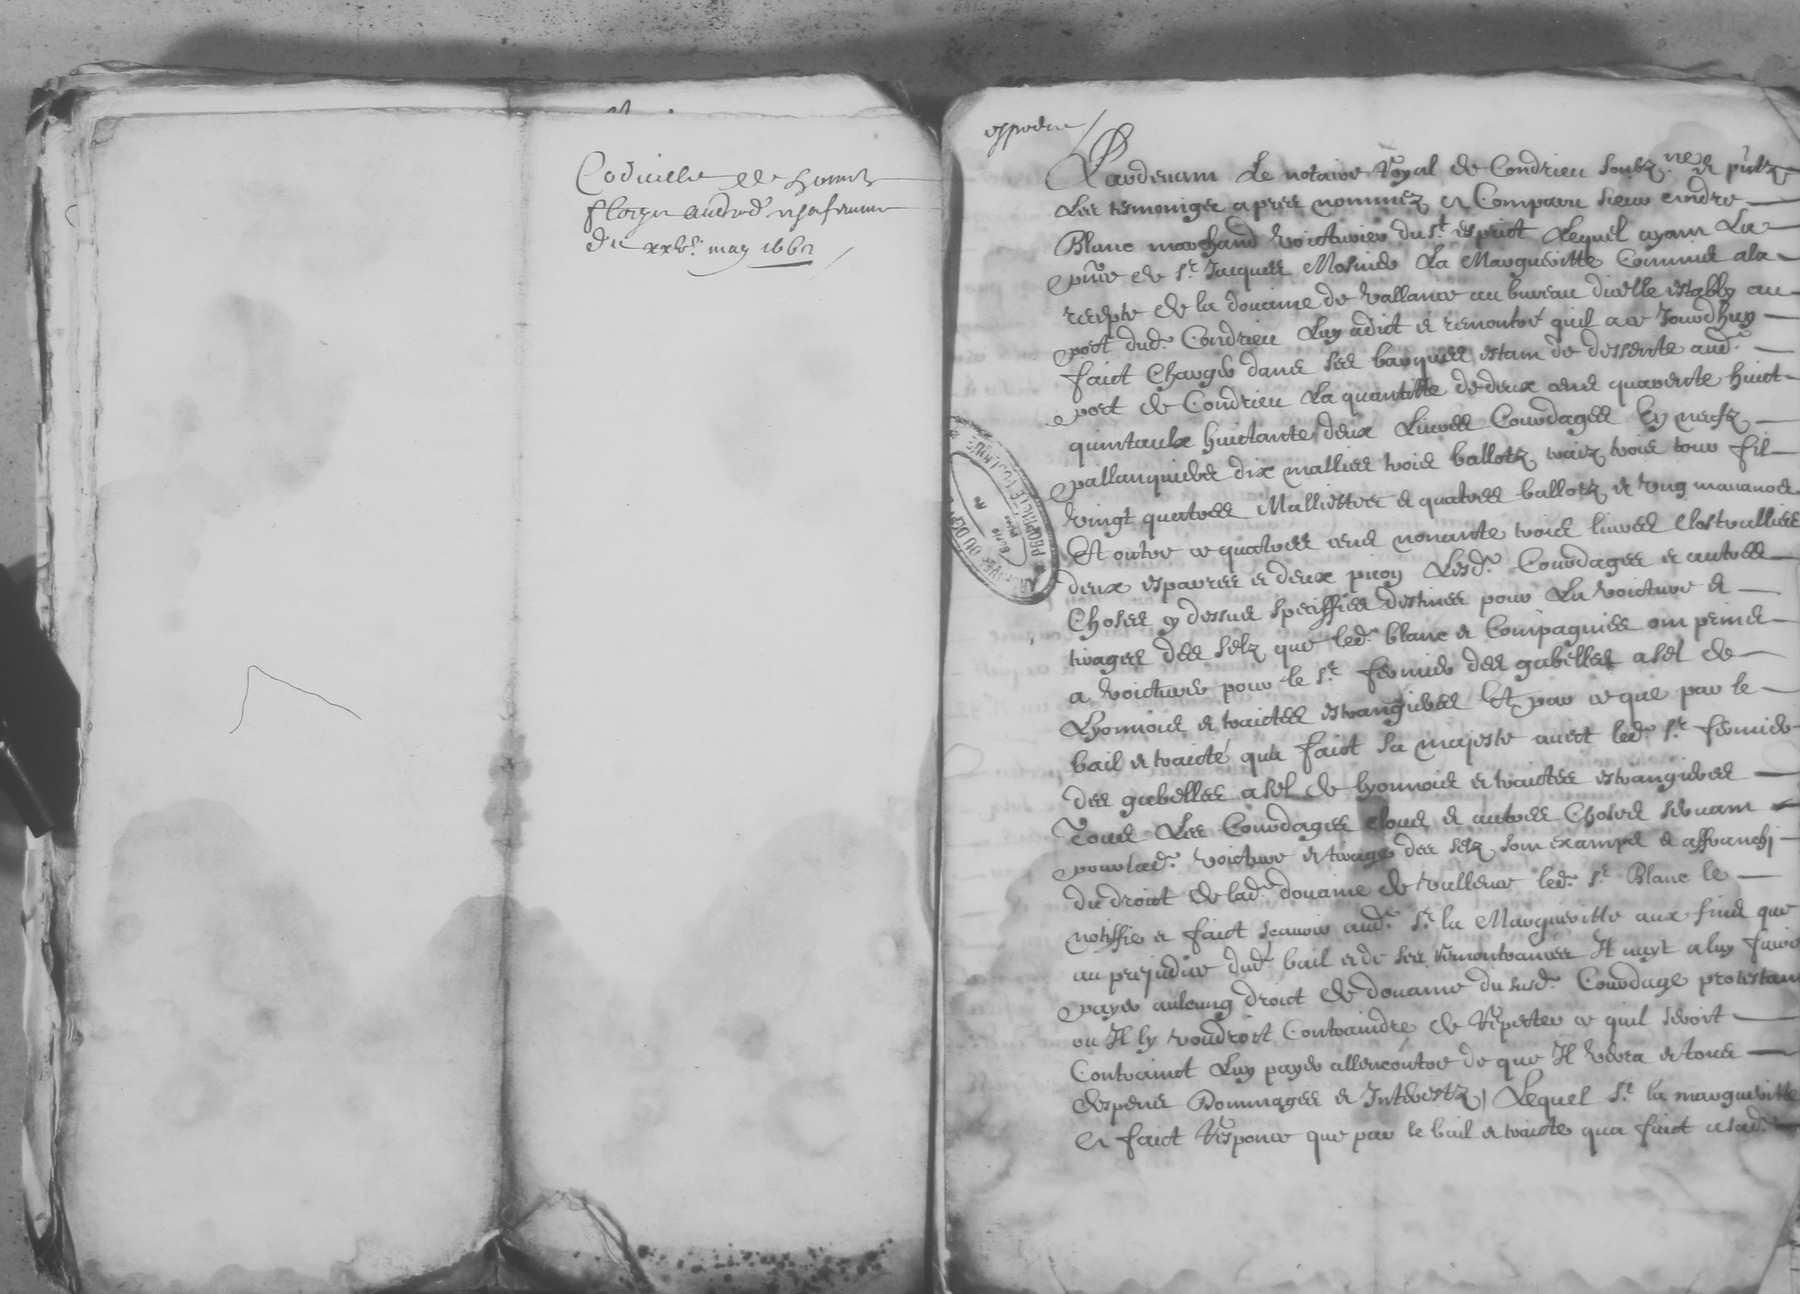 Codicille de honneste
du xxve may 1662
expedie
Pardevant Le notaire Royal de Condrieu soubz.ne et pntz
Les tesmoinges apres nommez est Comparu sieur andre
Blanc marchand voicturier du st esprit Lequel ayant La
pnce de sr Jacques Mosnier La Margueritte Commis a la
recepte de la douaine de vallance au bureau dicelle estably au
port dud. Condrieu Luy a dict et remontré quil a ce Jourdhuy
faict Charger dans ses barques estant de dessente aud.
port de Condrieu La quantitte de deux cens quarente huict
quintaulx huictante deux Livres Courdages En neufz
pallanquieres dix mallies trois ballotz traiz trois tour fil
vingt quatres Malliettes et quatres ballotz et ung
Et outre ce quatres cens nonante trois livres
deux esparres et deux Lesd. Courdages et autres
Choses cy dessus speciffies destines pour La voicture et
tirages des selz que led. blanc et Compagnies ont prins
a voicturer pour le sr fermier des gabelles a sel de
Lyonnois et traictes estrangieres Et par ce que par le
bail et traicté qua faict sa majeste avect led. sr fermier
des gabelles a sel de lyonnois et traictes estrangieres
Tous Les Courdages clous et autres Choses servant
pour lad. voicture et tirage des selz sont exampt et affranchi
du droict de lad. douaine de vallence led. sr Blanc le
notiffie et faict scavoir aud. sr la Margueritte aux fins que
au prejudice dud. bail et de ses remontrances Il nayt a luy faire
payer aulcung droict de douaine du susd. Courdage protestant
ou Il ly voudroit Contraindre de Repetter ce quil seroit
Contrainct Luy payer allencontre de que Il verra et tous
despens Dommages et Interestz Lequel sr la margueritte
a faict Responce que par le bail et traicte qua faict sad.